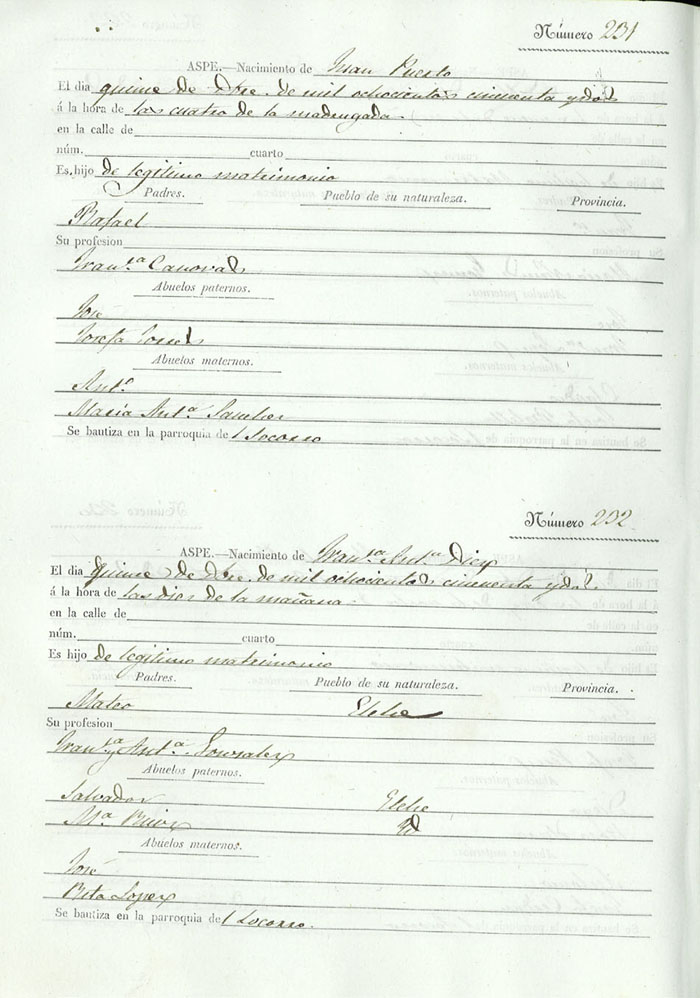 Número 231
ASPE.—Nacimiento de Juan Puerto
El dia quince de Dre. de mil ochocientos cincuenta y dos
á la hora de las cuatro de la madrugada.
en la calle de
núm. cuarto
Es hijo de legitimo matrimonio
Padres. Pueblo de su naturaleza. Provincia.
Rafael
Su profesion
Fran.ca Canovas
Abuelos paternos.
José
Josefa
Abuelos maternos.
Ant.o
Maria Ant.a Sanchez
Se bautiza en la parroquia de l Socorro
Número 232
ASPE.—Nacimiento de Fran.ca Ant.a Diez
El dia quince de Dre. de mil ochocientos cincuenta y dos.
á la hora de las dies de la mañana.
en la calle de
núm. cuarto
Es hijo de legitimo matrimonio
Padres. Pueblo de su naturaleza. Provincia.
Mateo Elche
Su profesion
Fran.ca Ant.a Gonzalez
Abuelos paternos.
Salvador Elche
M.a Id
Abuelos maternos.
José
Rita Lopez
Se bautiza en la parroquia de l Socorro.